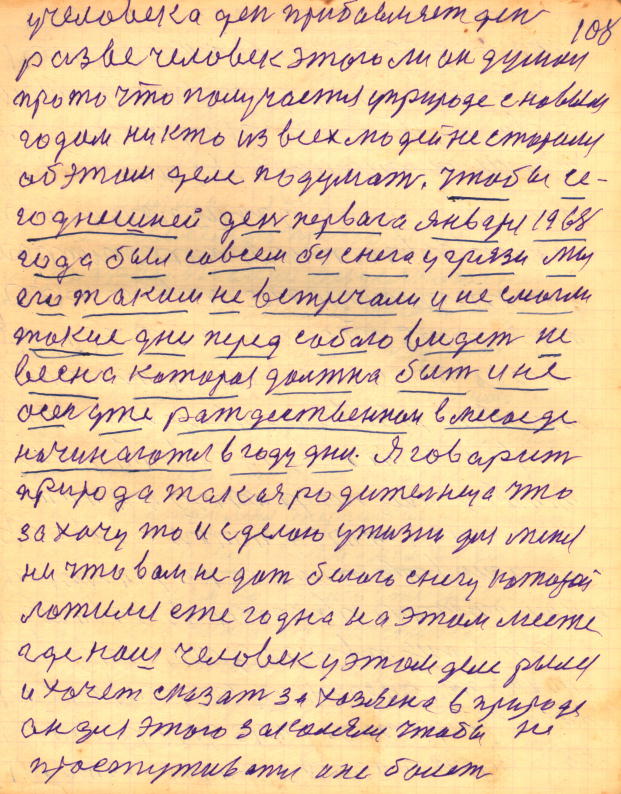 108
учеловека ден прибовляет ден
разве человек этого ли он думал
про то что получается уприроде с новым
годом никто из всех людей не сторался
об этом деле подумат. чтобы се-
годнешней ден первага января 1968
года был совсем без снега у грязи мы
его таким не встречали и не смогли
такие дни перед собою видет не
весна которая должна быт и не
осен уже раждественном в месоеде
начинаются в году дни. Я говорит
природа такая родителница что
захочу то и сделаю ужизни для меня
ничто вам не дат белого снегу который
ложился ежегодна на этом месте
где наш человек у этом деле рылся
и хочет сказат за хозяена в природе
он зил этого закаляли чтобы не
простуживатся и не болет